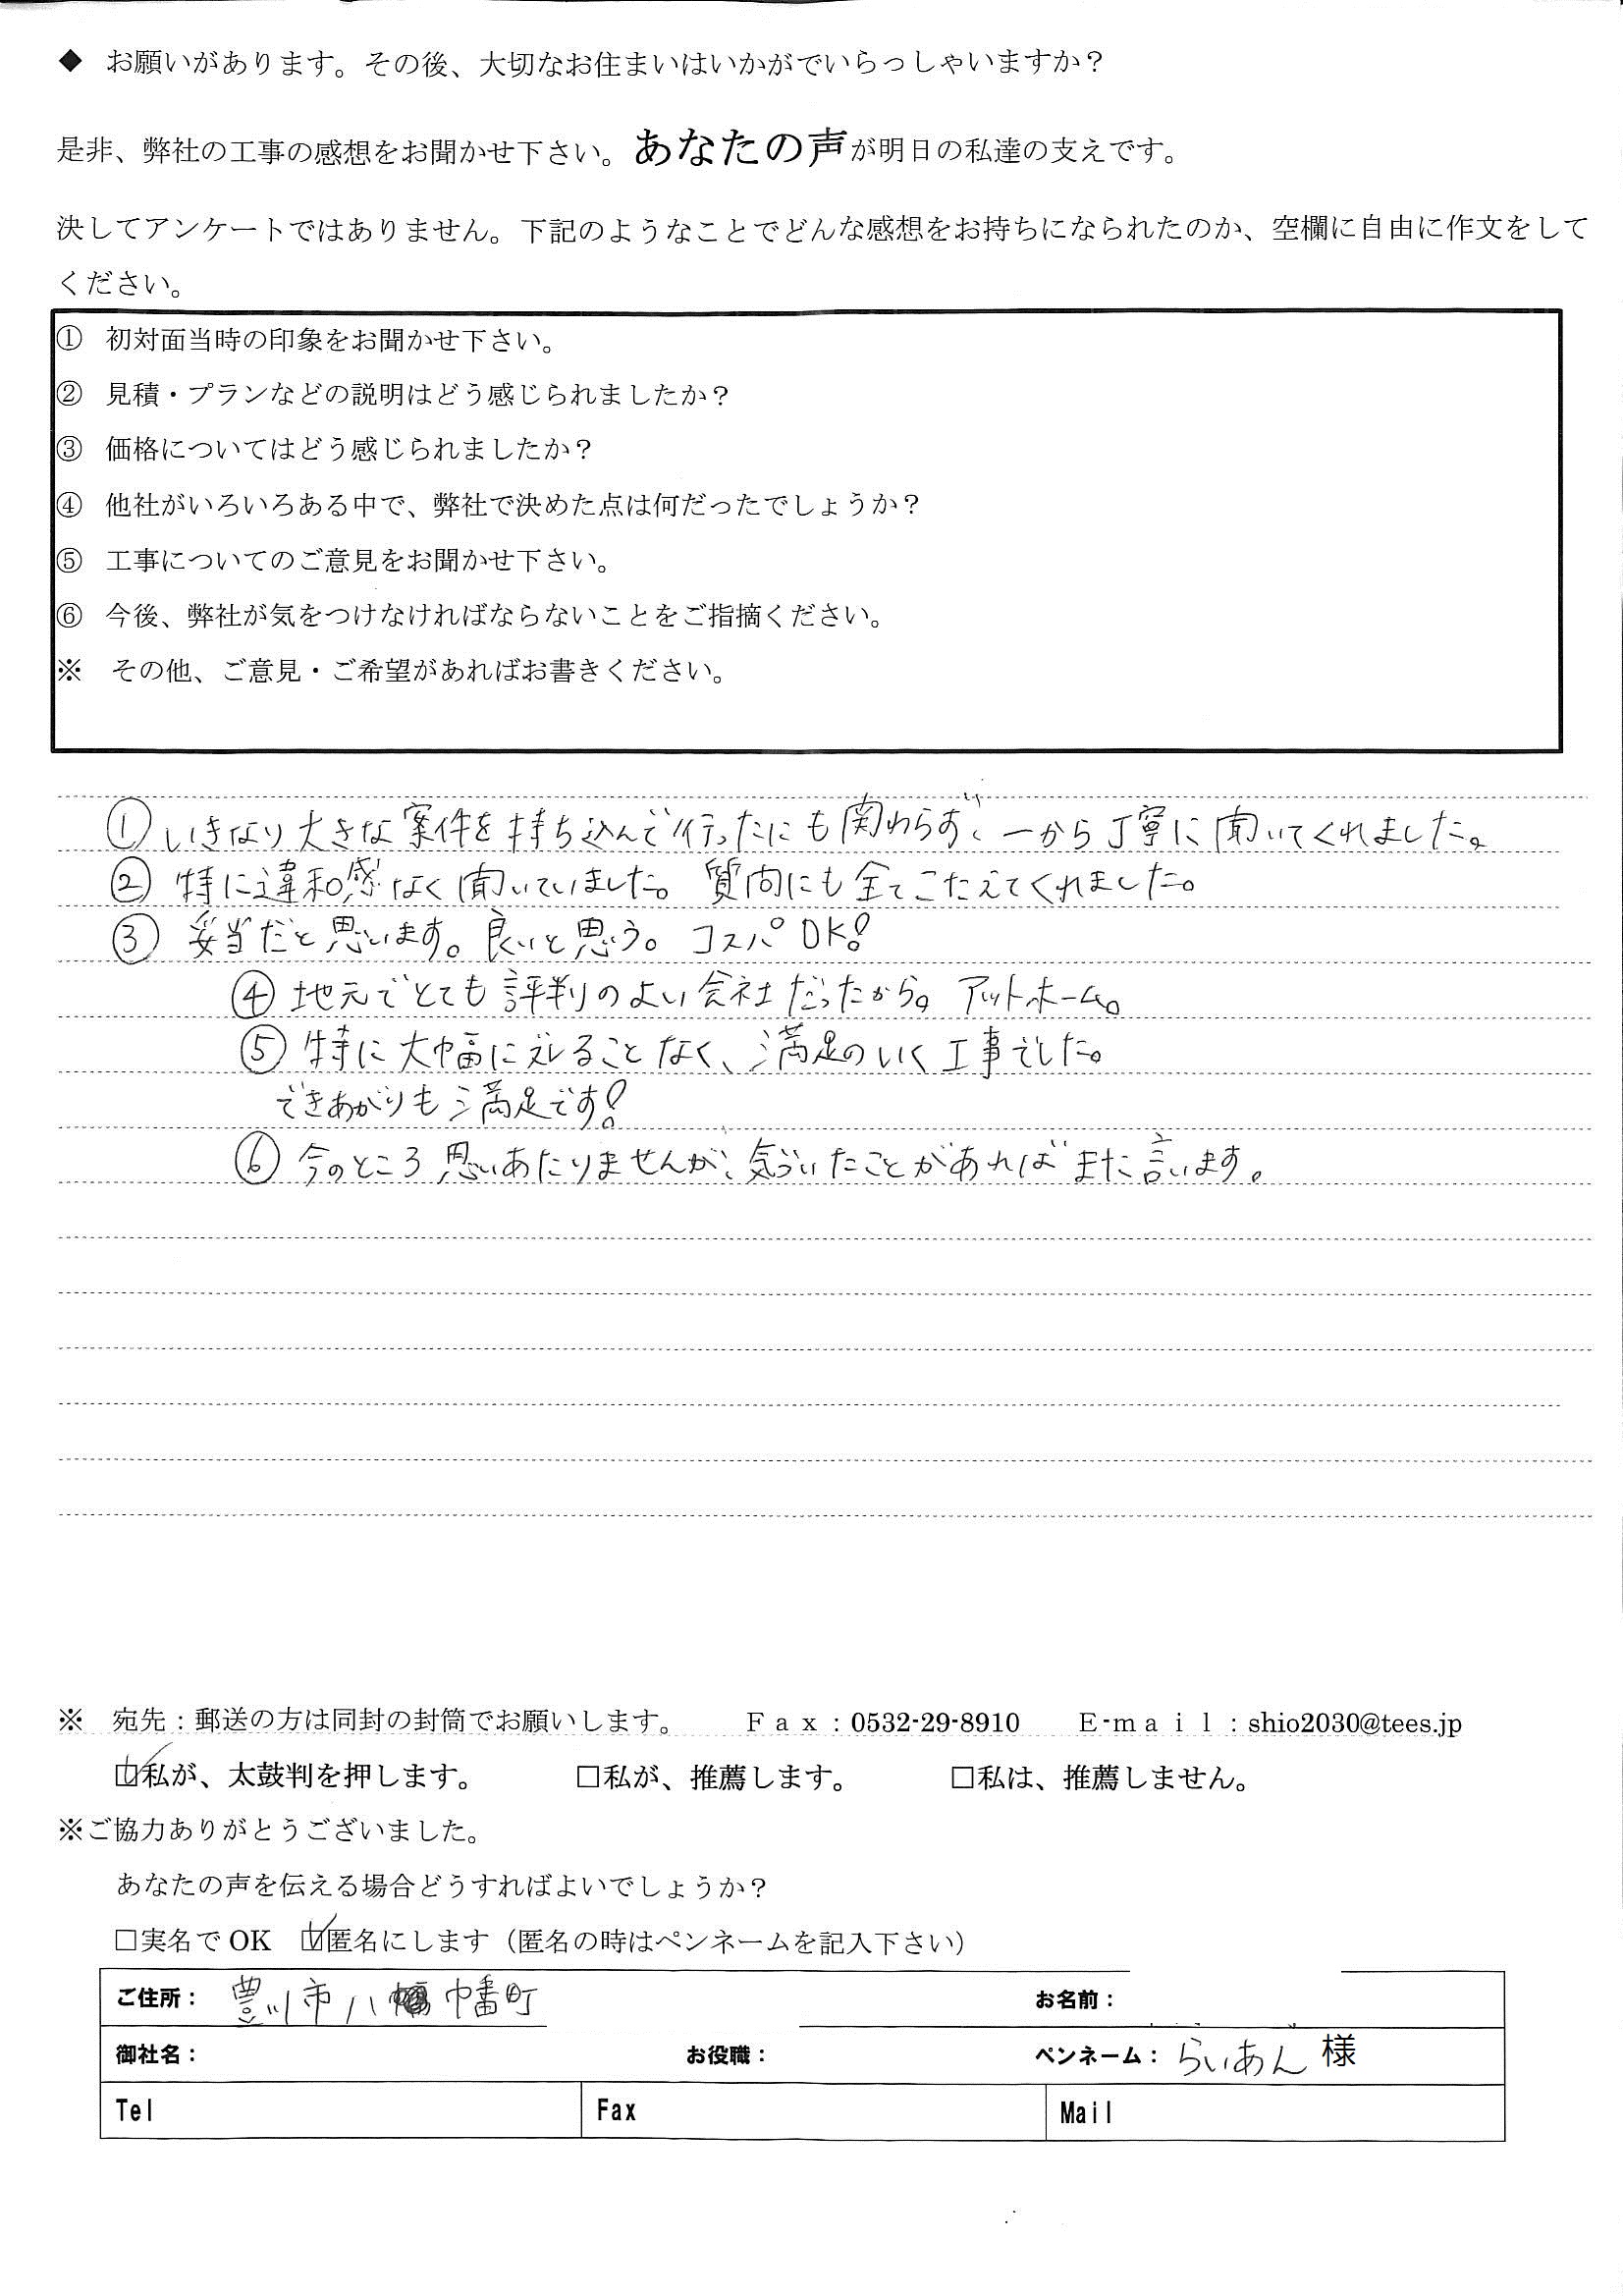 ◆ お願いがあります。その後、大切なお住まいはいかがでいらっしゃいますか？
是非、弊社の工事の感想をお聞かせ下さい。あなたの声が明日の私達の支えです。
決してアンケートではありません。下記のようなことでどんな感想をお持ちになられたのか、空欄に自由に作文をして
ください。
① 初対面当時の印象をお聞かせ下さい。
② 見積・プランなどの説明はどう感じられましたか？
③ 価格についてはどう感じられましたか？
④ 他社がいろいろある中で、弊社で決めた点は何だったでしょうか？
⑤ 工事についてのご意見をお聞かせ下さい。
⑥ 今後、弊社が気をつけなければならないことをご指摘ください。
※ その他、ご意見・ご希望があればお書きください。
① いきなり大きな案件を持ち込んで行ったにも関わらず、一から丁寧に聞いてくれました。
② 特に違和感なく聞いていました。質問にも全てこたえてくれました。
③ 妥当だと思います。良いと思う。コスパOK!
④ 地元でとても評判のよい会社だったから。アットホーム。
⑤ 特に大幅にズレることなく、満足のいく工事でした。
できあがりも満足です!
⑥ 今のところ思いあたりませんが、気づいたことがあればまた言います。
※ 宛先：郵送の方は同封の封筒でお願いします。 Ｆａｘ：0532-29-8910 Ｅ-ｍａｉｌ：shio2030@tees.jp
☑私が、太鼓判を押します。 □私が、推薦します。 □私は、推薦しません。
※ご協力ありがとうございました。
あなたの声を伝える場合どうすればよいでしょうか？
□実名でOK ☑匿名にします（匿名の時はペンネームを記入下さい）
ご住所： 豊川市八幡町 お名前：
御社名： お役職： ペンネーム： らいあん 様
Tel Fax Mail